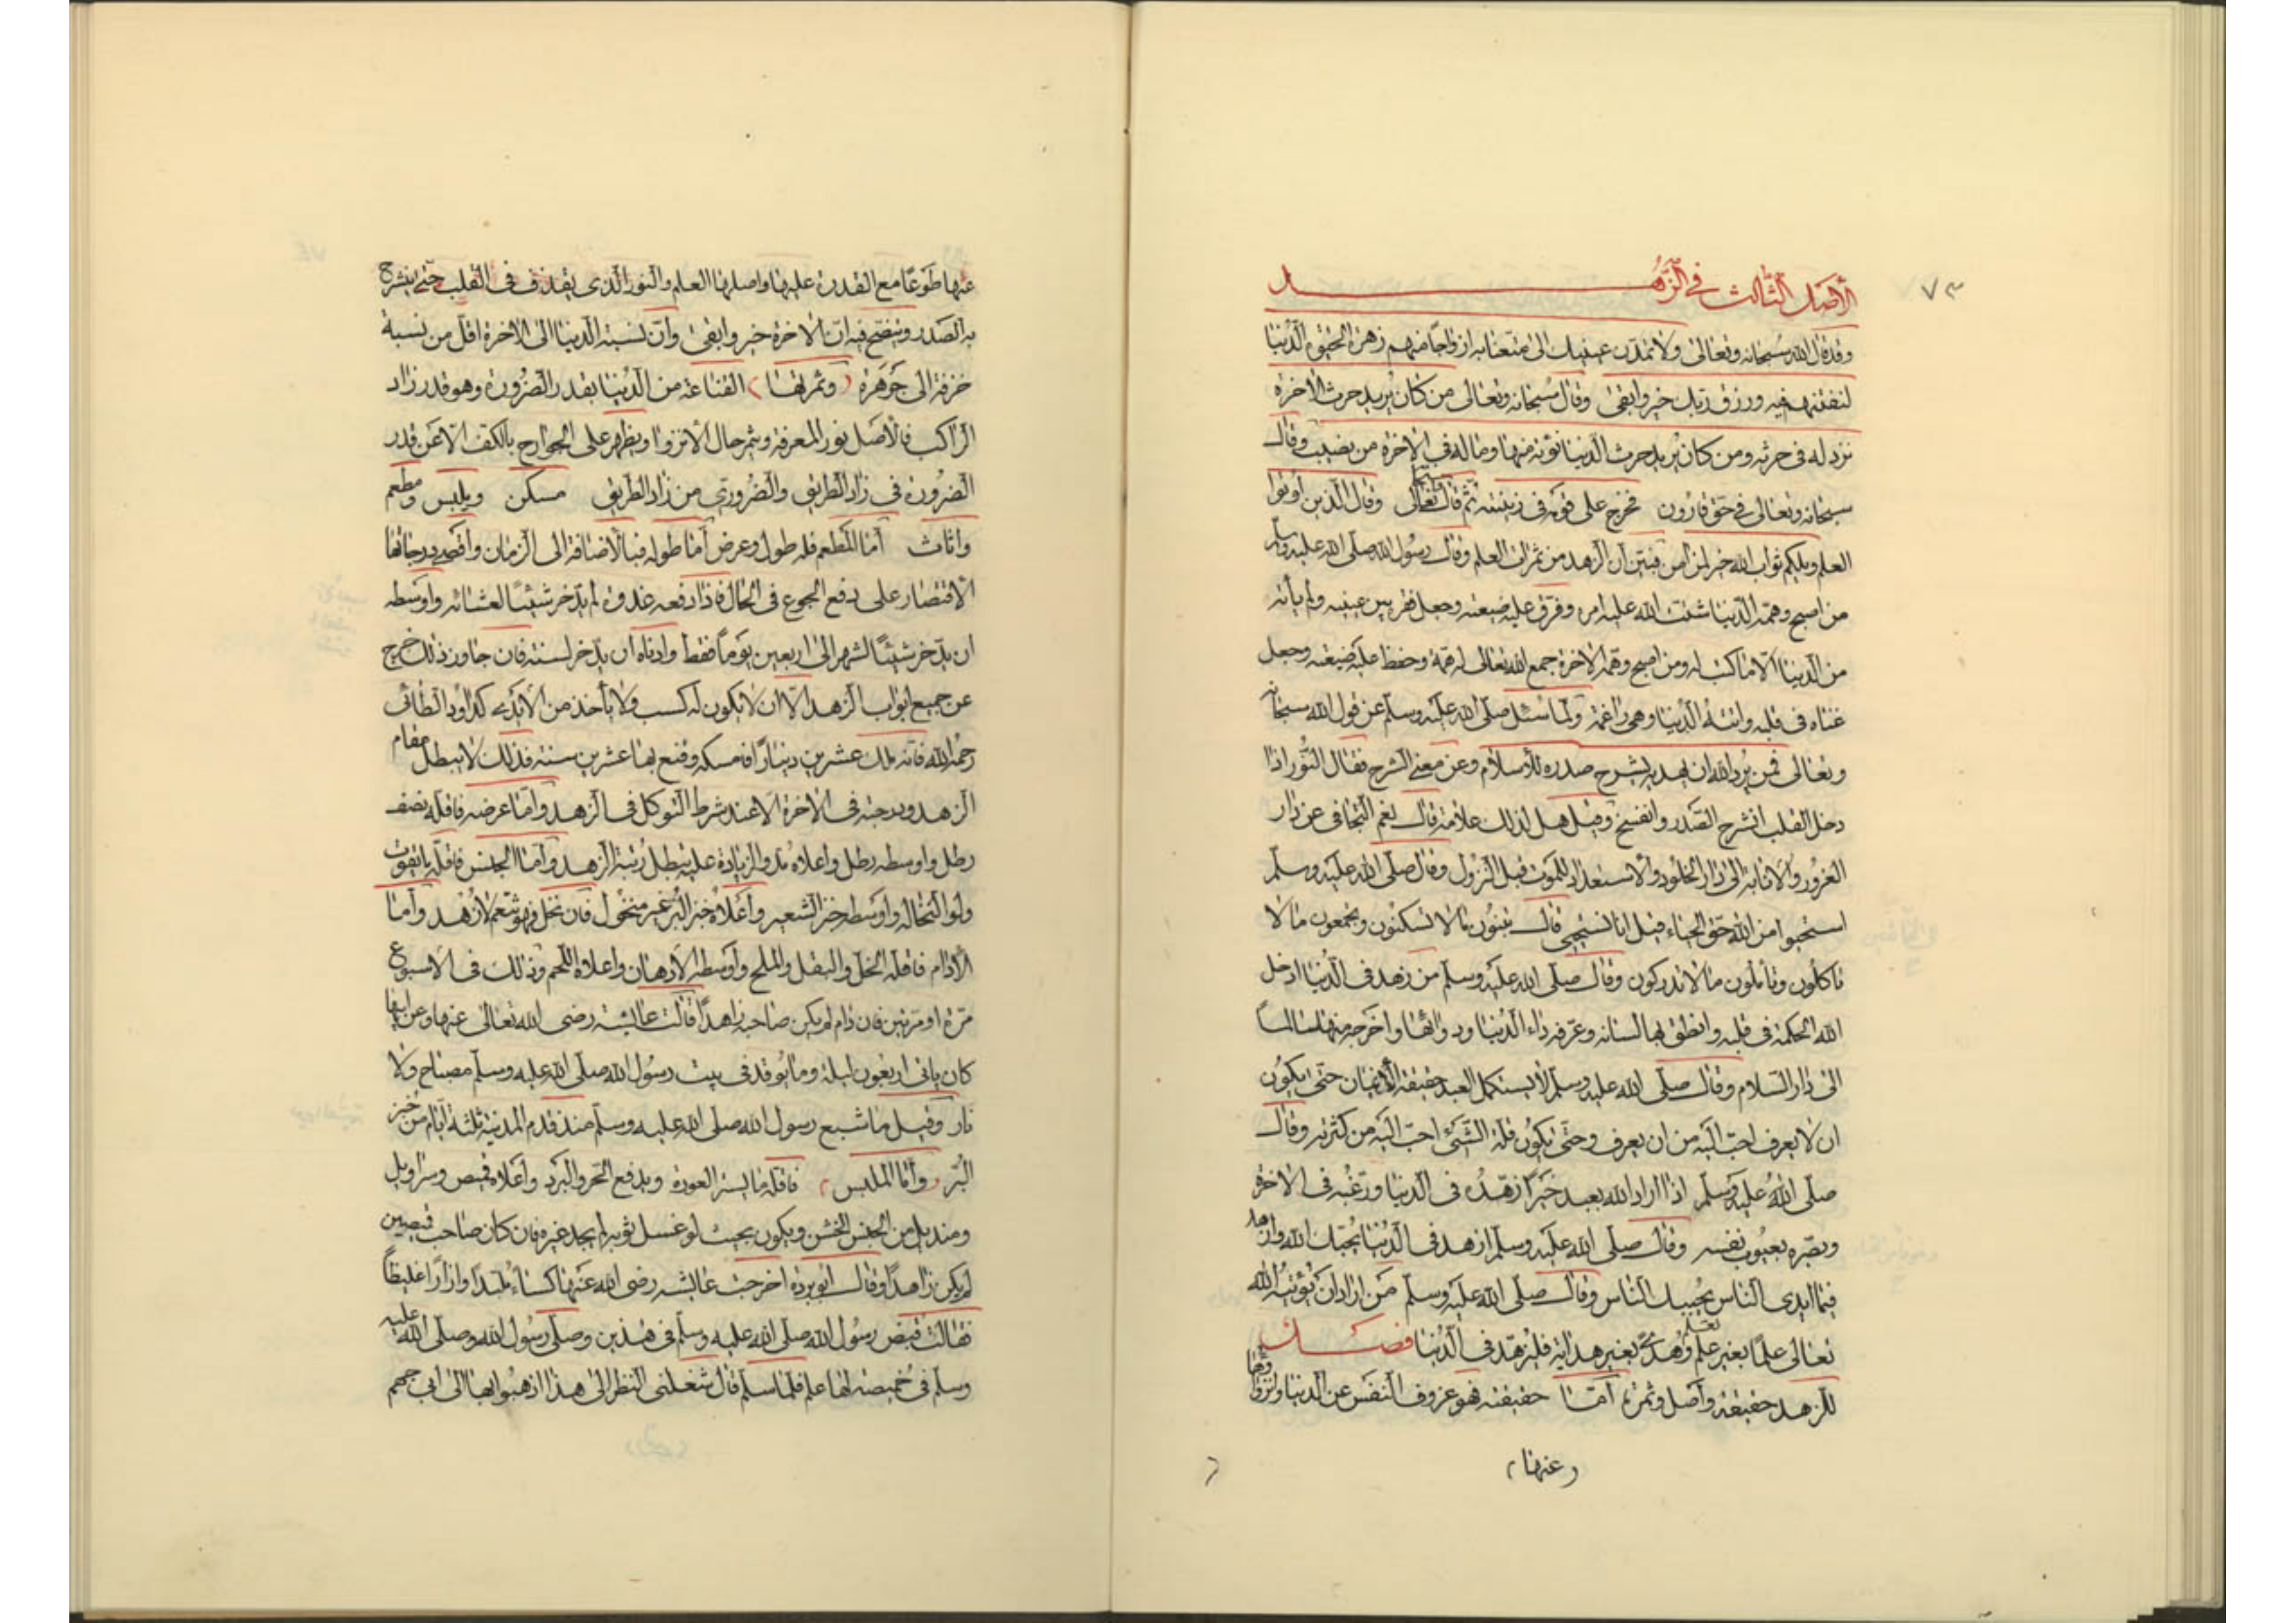 ٧٣
الأصل الثالث في الزهد
وقد قال الله سبحانه وتعالى ولا تمدّن عينيك الى ما متعنا به ازواجًا منهم زهرة الحيوة الدنيا
لنفتنهم فيه ورزق ربك خير وابقى وقال سبحانه وتعالى من كان يريد حرث الآخرة
نزد له في حرثه ومن كان يريد حرث الدنيا نؤته منها وما له في الاخرة من نصيب وقال
سبحانه وتعالى في حق قارون فخرج على قومه في زينته ثم قال تعالى وقال الذين اوتوا
العلم ويلكم ثواب الله خير لمن آمن فبيّن أن الزهد من ثمرات العلم وقال رسول الله صلى الله عليه وسلم
من اصبح وهمّه الدنيا شتت الله عليه امره وفرّق عليه ضيعته وجعل فقره بين عينيه ولم يأته
من الدنيا الّا ما كتب له ومن اصبح وهمّه الآخرة جمع الله تعالى له همّه وحفظ عليه ضيعته وجعل
غناه في قلبه واتته الدنيا وهي راغمة ولما سئل صلى الله عليه وسلم عن قول الله سبحانه
وتعالى فمن يرد الله ان يهديه يشرح صدره للأسلام وعن معنى الشرح فقال النّور اذا
دخل القلب انشرح الصّدر وانفسح وقيل هل لذلك علامة قال نعم التجافي عن دار
الغرور والانابة الى دار الخلود والاستعداد للموت قبل النزول وقال صلى الله عليه وسلم
استحيوا من الله حق الحياء قيل انا نستحيي قال تبنون ما لا تسكنون وتجمعون ما لا
تاكلون وتأملون ما لا تدركون وقال صلى الله عليه وسلم من زهد في الدنيا ادخل
الله الحكمة في قلبه وانطق بها لسانه وعرّفه داء الدنيا ودوائها واخرجه منها سالماً
الى دار السلام وقال صلى الله عليه وسلم لا يستكمل العبد حقيقة الأيمان حتى يكون
ان لا يعرف احبّ اليه من ان يعرف وحتى يكون قلة الشيء احبّ اليه من كثرته وقال
صلى الله عليه وسلم اذا اراد الله بعبد خيرًا زهّده في الدنيا ورغّبه في الاخرة
وبصّره بعيوب نفسه وقال صلى الله عليه وسلم ازهد في الدنيا يحبك الله وازهد
فيما ايدى الناس يحببك الناس وقال صلى الله عليه وسلم من اراد ان يؤتيه الله
تعالى علمًا بغير تعلم وهدى بغير هداية فليزهد في الدنيا فصل
للزهد حقيقة واصل وثمرة أمّا حقيقته فهو عزوف النفس عن الدنيا وانزواؤها
عنها
عنها طوعًا مع القدرة عليها واصلها العلم والنور الذى يقذف في القلب حتى ينشرح
به الصدر ويتضح فيه انّ الاخرة خير وابقى وأن نسبة الدنيا الى الآخرة اقلّ من نسبة
خزفة الى جوهرة وثمرتها القناعة من الدنيا بقدر الضرورة وهو قدر زاد
الراكب فالأصل نور المعرفة ويثمر حال الأنزوا ويظهر على الجوارح بالكف الّا عن قدر
الضرورة في زاد الطريق والضروري من زاد الطريق مسكن وملبس ومطعم
واثاث أمّا المطعم فله طول وعرض أمّا طوله فبالأضافة الى الزمان واقصى درجاتها
الأقتصار على دفع الجوع في الحال فاذا دفعه غدوة لم يدّخر شيئًا لعشائه واوسطه
ان يدّخر شيئًا لشهر الى اربعين يومًا فقط وادناه ان يدّخر لسنته فان جاوز ذلك خرج
عن جميع ابواب الزهد الّا ان لا يكون له كسب ولا يأخذ من الأيدى كداود الطائي
رحمه الله فانه ملك عشرين دينارًا فامسكه وقنع بها عشرين سنة فذلك لا يبطل مقام
الزهد ودرجته في الاخرة الّا عند شرط التوكل في الزهد وامّا عرضه فاقله نصف
رطل واوسطه رطل واعلاه مدّ والزيادة عليه يبطل رتبة الزهد وأما الجنس فاقله ما يقوت
ولو النخالة واوسطه خبز الشعير وأعلاه خبز البرّ غير منخول فان نخل فهو تنعم لا زهد وأما
الأدام فاقله الخل والبقل والملح وأوسطه الأدهان واعلاه اللحم وذلك في الاسبوع
مرّة او مرّتين فان دام لم يكن صاحبه زاهدًا قالت عائشة رضى الله تعالى عنها وعن ابيها
كان ياتي اربعون ليلة وما يوقد في بيت رسول الله صلى الله عليه وسلم مصباح ولا
نار وقيل ما شبع رسول الله صلى الله عليه وسلم منذ قدم المدينة ثلثة ايام من خبز
البرّ وأمّا الملبس فاقله ما يستر العورة ويدفع الحر والبرد وأعلاه قميص وسراويل
ومنديل من الجنس الخشن ويكون بحيث لو غسل ثوبه لم يجد غيره فان كان صاحب قميصين
لم يكن زاهدًا وقال ابو بردة اخرجت عائشة رضى الله عنها كساءً ملبّدًا وازارًا غليظًا
فقالت قبض رسول الله صلى الله عليه وسلم في هذين وصلّى رسول الله وصلى الله عليه
وسلم في خميصة لها علم فلمّا سلّم قال شغلنى النظر الى هذا اذهبوا بها الى ابي جهم